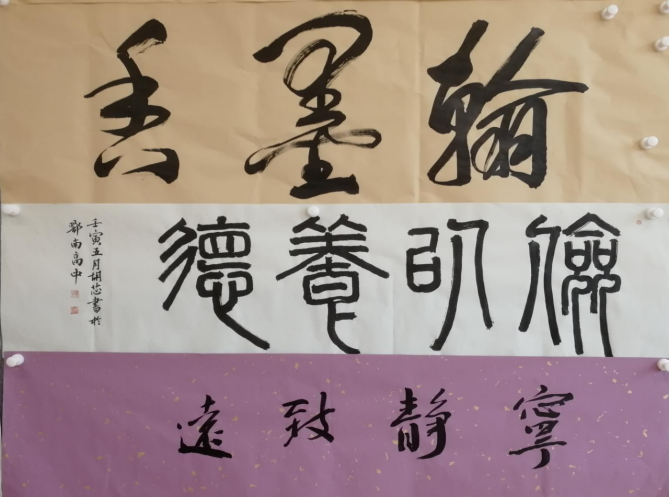 翰墨香
儉以養德
壬寅五月胡蕊書於
鄂南高中
寧靜致遠